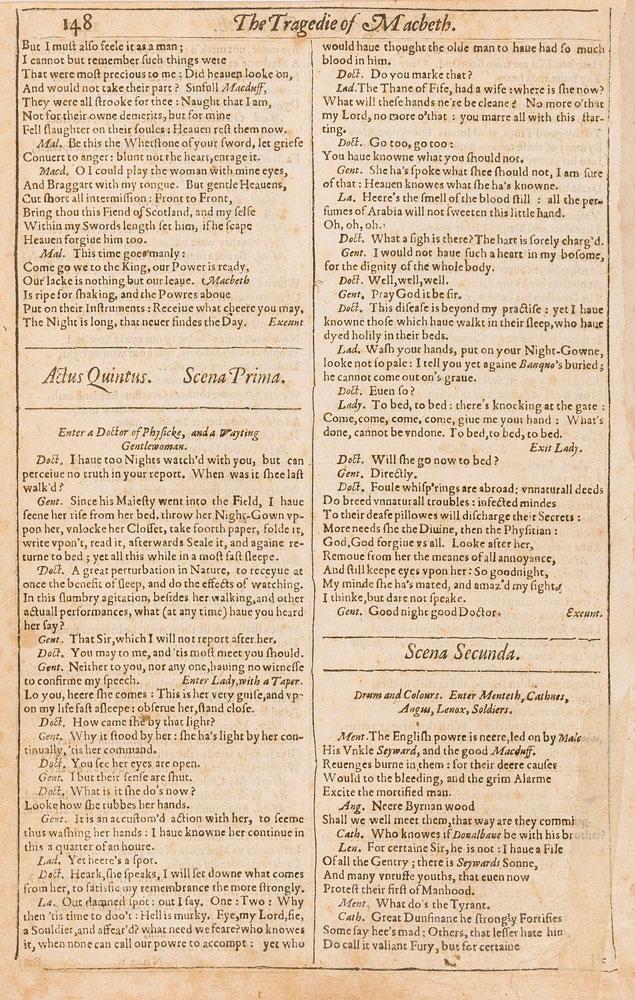 148
The Tragedie of Macbeth.
But I must also feele it as a man;
I cannot but remember such things were
That were most precious to me: Did heauen looke on,
And would not take their part? Sinfull Macduff,
They were all strooke for thee: Naught that I am,
Not for their owne demerits, but for mine
Fell slaughter on their soules: Heauen rest them now.
Mal. Be this the Whetstone of your sword, let griefe
Conuert to anger: blunt not the heart, enrage it.
Macd. O I could play the woman with mine eyes,
And Braggart with my tongue. But gentle Heauens,
Cut short all intermission: Front to Front,
Bring thou this Fiend of Scotland, and my selfe
Within my Swords length set him, if he scape
Heauen forgiue him too.
Mal. This time goes manly:
Come go we to the King, our Power is ready,
Our lacke is nothing but our leaue. Macbeth
Is ripe for shaking, and the Powres aboue
Put on their Instruments: Receiue what cheere you may,
The Night is long, that neuer findes the Day. Exeunt
Actus Quintus. Scena Prima.
Enter a Doctor of Physicke, and a Wayting
Gentlewoman.
Doct. I haue too Nights watch'd with you, but can
perceiue no truth in your report. When was it shee last
walk'd?
Gent. Since his Maiesty went into the Field, I haue
seene her rise from her bed, throw her Night-Gown vp-
pon her, vnlocke her Closset, take foorth paper, folde it,
write vpon't, read it, afterwards Seale it, and againe re-
turne to bed; yet all this while in a most fast sleepe.
Doct. A great perturbation in Nature, to receyue at
once the benefit of sleep, and do the effects of watching.
In this slumbry agitation, besides her walking, and other
actuall performances, what (at any time) haue you heard
her say?
Gent. That Sir, which I will not report after her.
Doct. You may to me, and 'tis most meet you should.
Gent. Neither to you, nor any one, hauing no witnesse
to confirme my speech. Enter Lady, with a Taper.
Lo you, heere she comes: This is her very guise, and vp-
on my life fast asleepe: obserue her, stand close.
Doct. How came she by that light?
Gent. Why it stood by her: she ha's light by her con-
tinually, 'tis her command.
Doct. You see her eyes are open.
Gent. I but their sense are shut.
Doct. What is it she do's now?
Looke how she rubbes her hands.
Gent. It is an accustom'd action with her, to seeme
thus washing her hands: I haue knowne her continue in
this a quarter of an houre.
Lad. Yet heere's a spot.
Doct. Heark, she speaks, I will set downe what comes
from her, to satisfie my remembrance the more strongly.
La. Out damned spot: out I say. One: Two: Why
then 'tis time to doo't: Hell is murky. Fye, my Lord, fie,
a Souldier, and affear'd? what need we feare? who knowes
it, when none can call our powre to accompt: yet who
would haue thought the olde man to haue had so much
blood in him.
Doct. Do you marke that?
Lad. The Thane of Fife, had a wife: where is she now?
What will these hands ne're be cleane? No more o'that
my Lord, no more o'that: you marre all with this star-
ting.
Doct. Go too, go too:
You haue knowne what you should not.
Gent. She ha's spoke what shee should not, I am sure
of that: Heauen knowes what she ha's knowne.
La. Heere's the smell of the blood still: all the per-
fumes of Arabia will not sweeten this little hand.
Oh, oh, oh.
Doct. What a sigh is there? The hart is sorely charg'd.
Gent. I would not haue such a heart in my bosome,
for the dignity of the whole body.
Doct. Well, well, well.
Gent. Pray God it be sir.
Doct. This disease is beyond my practise: yet I haue
knowne those which haue walkt in their sleep, who haue
dyed holily in their beds.
Lad. Wash your hands, put on your Night-Gowne,
looke not so pale: I tell you yet againe Banquo's buried;
he cannot come out on's graue.
Doct. Euen so?
Lady. To bed, to bed: there's knocking at the gate:
Come, come, come, come, giue me your hand: What's
done, cannot be vndone. To bed, to bed, to bed.
Exit Lady.
Doct. Will she go now to bed?
Gent. Directly.
Doct. Foule whisp'rings are abroad: vnnaturall deeds
Do breed vnnaturall troubles: infected mindes
To their deafe pillowes will discharge their Secrets:
More needs she the Diuine, then the Physitian:
God, God forgiue vs all. Looke after her,
Remoue from her the meanes of all annoyance,
And still keepe eyes vpon her: So goodnight,
My minde she ha's mated, and amaz'd my sight.
I thinke, but dare not speake.
Gent. Good night good Doctor. Exeunt.
Scena Secunda.
Drum and Colours. Enter Menteth, Cathnes,
Angus, Lenox, Soldiers.
Ment. The English powre is neere, led on by Malc
His Vnkle Seyward, and the good Macduff.
Reuenges burne in them: for their deere causes
Would to the bleeding, and the grim Alarme
Excite the mortified man.
Ang. Neere Byrnan wood
Shall we well meet them, that way are they commi
Cath. Who knowes if Donalbane be with his brother?
Len. For certaine Sir, he is not: I haue a File
Of all the Gentry; there is Seywards Sonne,
And many vnruffe youths, that euen now
Protest their first of Manhood.
Ment. What do's the Tyrant.
Cath. Great Dunsinane he strongly Fortifies
Some say hee's mad: Others, that lesser hate him
Do call it valiant Fury, but for certaine